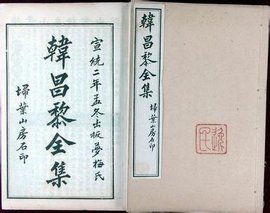 宣統二年孟冬出板夢梅氏
韓昌黎全集
埽葉山房石印
韓昌黎全集
埽葉山房石印